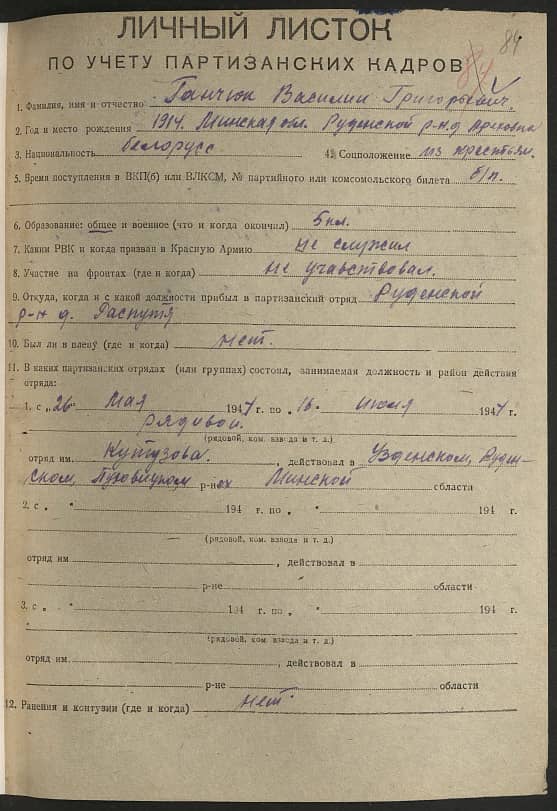 84
ЛИЧНЫЙ ЛИСТОК
84
ПО УЧЕТУ ПАРТИЗАНСКИХ КАДРОВ
1. Фамилия, имя и отчество Ганчюк Василий Григорьевич.
2. Год и место рождения 1914. Минская обл. Руденской р-н д.
3. Национальность белорусс 4. Соцположение из крестьян.
5. Время поступления в ВКП(б) или ВЛКСМ, № партийного или комсомольского билета б/п.
6. Образование: общее и военное (что и когда окончил) 5 кл.
7. Каким РВК и когда призван в Красную Армию не служил
8. Участие на фронтах (где и когда) не учавствовал.
9. Откуда, когда и с какой должности прибыл в партизанский отряд Руденской
р-н д. Распутя
10. Был ли в плену (где и когда) нет.
11. В каких партизанских отрядах (или группах) состоял, занимаемая должность и район действия
отряда:
1. с „26" мая 1944 г. по „16" июля 1944 г.
рядивой.
(рядовой, ком. взвода и т. д.)
отряд им. Кутузова. , действовал в Узденском, Руден-
ском, Пуховицком р-нах Минской области
2. с „ " 194 г. по „ " 194 г.
(рядовой, ком. взвода и т. д.)
отряд им , действовал в
р-не области
3. с „ " 194 г. по „ " 194 г.
(рядовой, ком. взвода и т. д.)
отряд им. , действовал в
р-не области
12. Ранения и контузии (где и когда) нет.